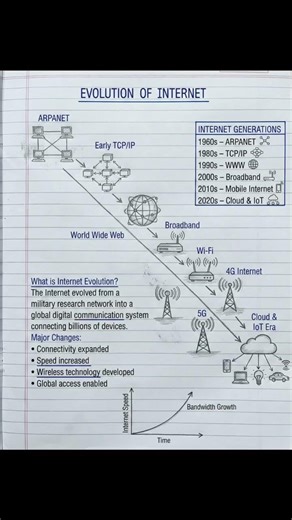 EVOLUTION OF INTERNET
ARPANET
Early TCP/IP
World Wide Web
Broadband
Wi-Fi
4G Internet
5G
Cloud &
IoT Era
INTERNET GENERATIONS
1960s – ARPANET
1980s – TCP/IP
1990s – WWW
2000s – Broadband
2010s – Mobile Internet
2020s – Cloud & IoT
What is Internet Evolution?
The Internet evolved from a
military research network into a
global digital communication system
connecting billions of devices.
Major Changes:
• Connectivity expanded
• Speed increased
• Wireless technology developed
• Global access enabled
Internet Speed
Bandwidth Growth
Time